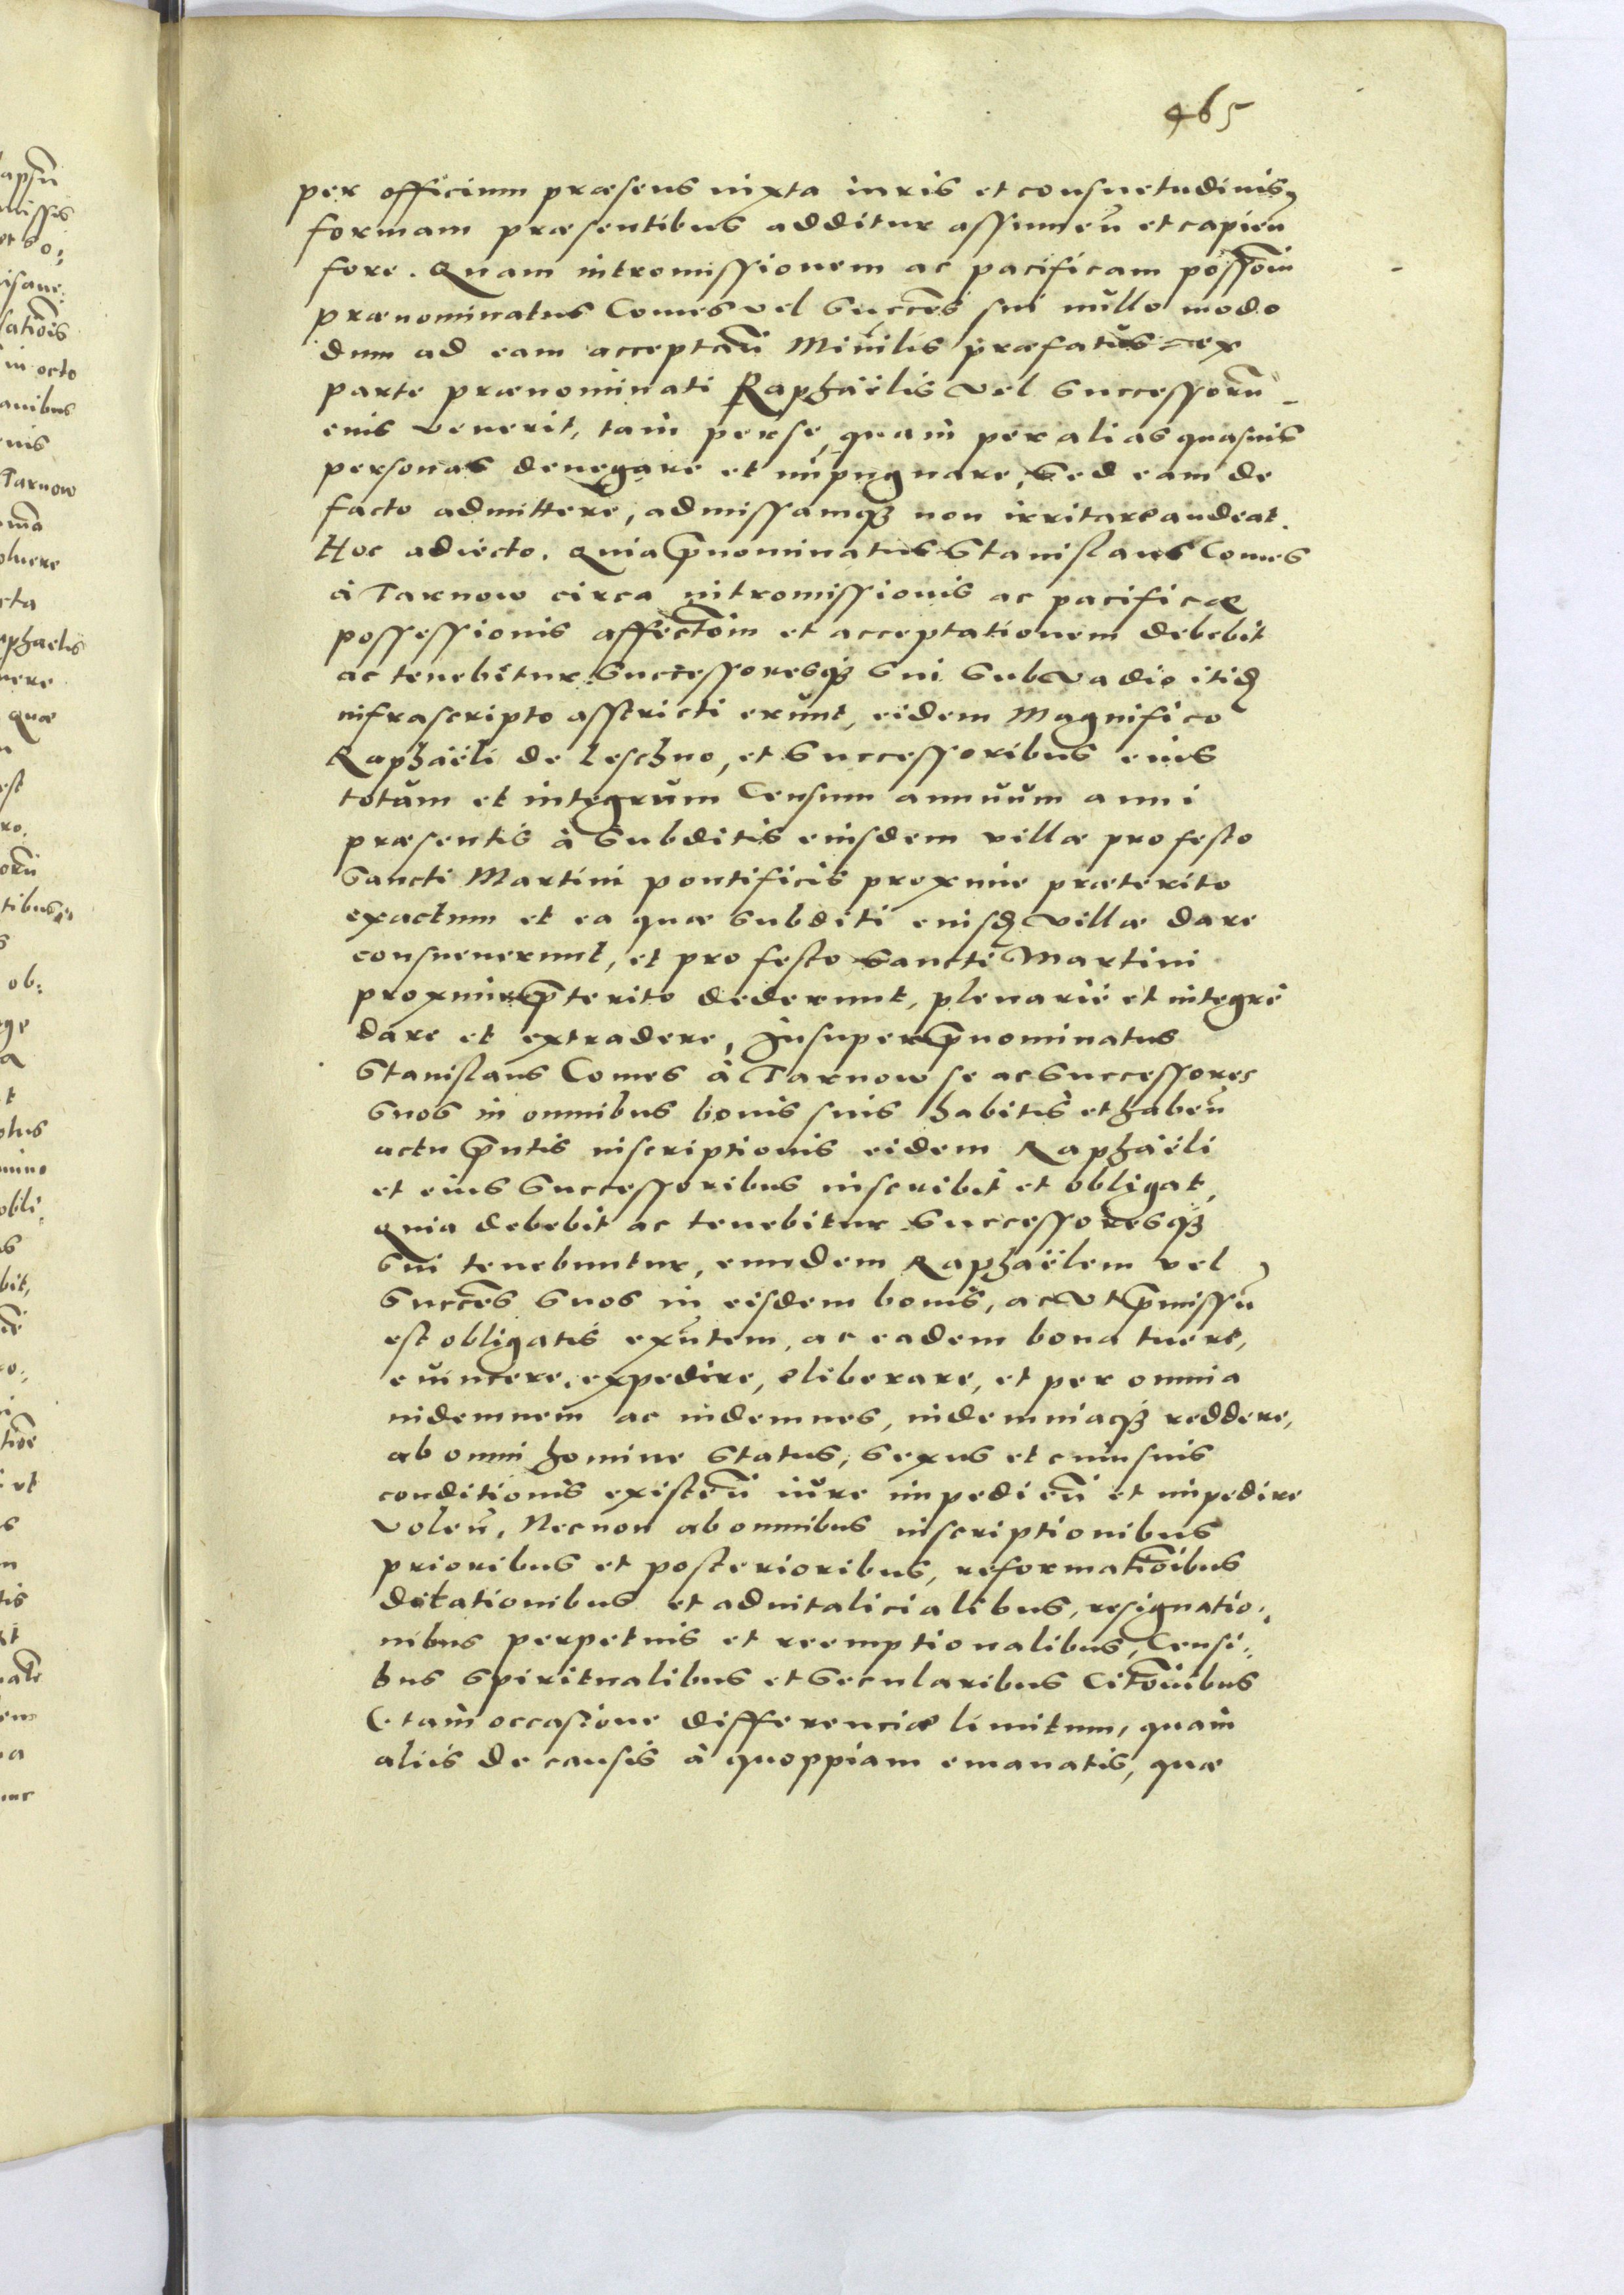 465
per officium præsens iuxta iuris et consuetudinis
formam præsentibus additur assumen̄ et capien
fore. Quam intromissionem ac pacificam possōin
prænominatus Comes vel Succēs sui nullo modo
dum ad eam acceptan̄ Mīnilis præfatus ex
parte prænominati Raphaëlis vel Successorū
eius venerit, tam per se, quam per alias quasuis
personas denegare et impugnare, Sed eam de
facto admittere, admissamq3 non irritare audeat.
Hoc adiecto. Quia p̄nominatus Stanislaus Comes
à Tarnow circa intromissionis ac pacificæ
possessionis affectōim et acceptationem debebit
ac tenebitur Successoresq3 Sui Sub Vadio itid̄
infrascripto asstricti erunt, eidem Magnifico
Raphaëli de Leschno, et Successoribus eius
totum et integrum Censum annuum anni
præsentis à Subditis eiusdem villæ pro festo
Sancti Martini pontificis proxime præterito
exactum et ea quæ Subditi eiusd̄ villæ dare
consueuerunt, et pro festo Sancti Martini
proxime p̄terito dederunt, plenariè et integrè
dare et extradere, Insuper p̄nominatus
Stanislaus Comes à Tarnow se ac Successores
Suos in omnibus bonis suis habitis et haben̄
actu p̄ntis inscriptionis eidem Raphaëli
et eius Successoribus inscribit et obligat,
quia debebit ac tenebitur Successoresq3
Sui tenebuntur, eundem Raphaëlem vel
Succēs Suos in eisdem bonis, ac vt p̄missū
est obligatis exn̄tem, ac eadem bona tueri,
euincere, expedire, eliberare, et per omnia
indemnem ac indemnes, indemniaq3 reddere,
ab omni homine Status, Sexus et cuiusuis
conditionis existen̄ iure impedien̄ et impedire
volen̄, Necnon ab omnibus inscriptionibus
prioribus et posterioribus, reformatiōibus
dotationibus et aduitalicialibus, resignatio:
nibus perpetuis et reemptionalibus, Censi:
bus Spiritualibus et Secularibus Citōnibus
Ctam occasione differenciæ limitum, quam
aliis de causis à quoppiam emanatis, quæ